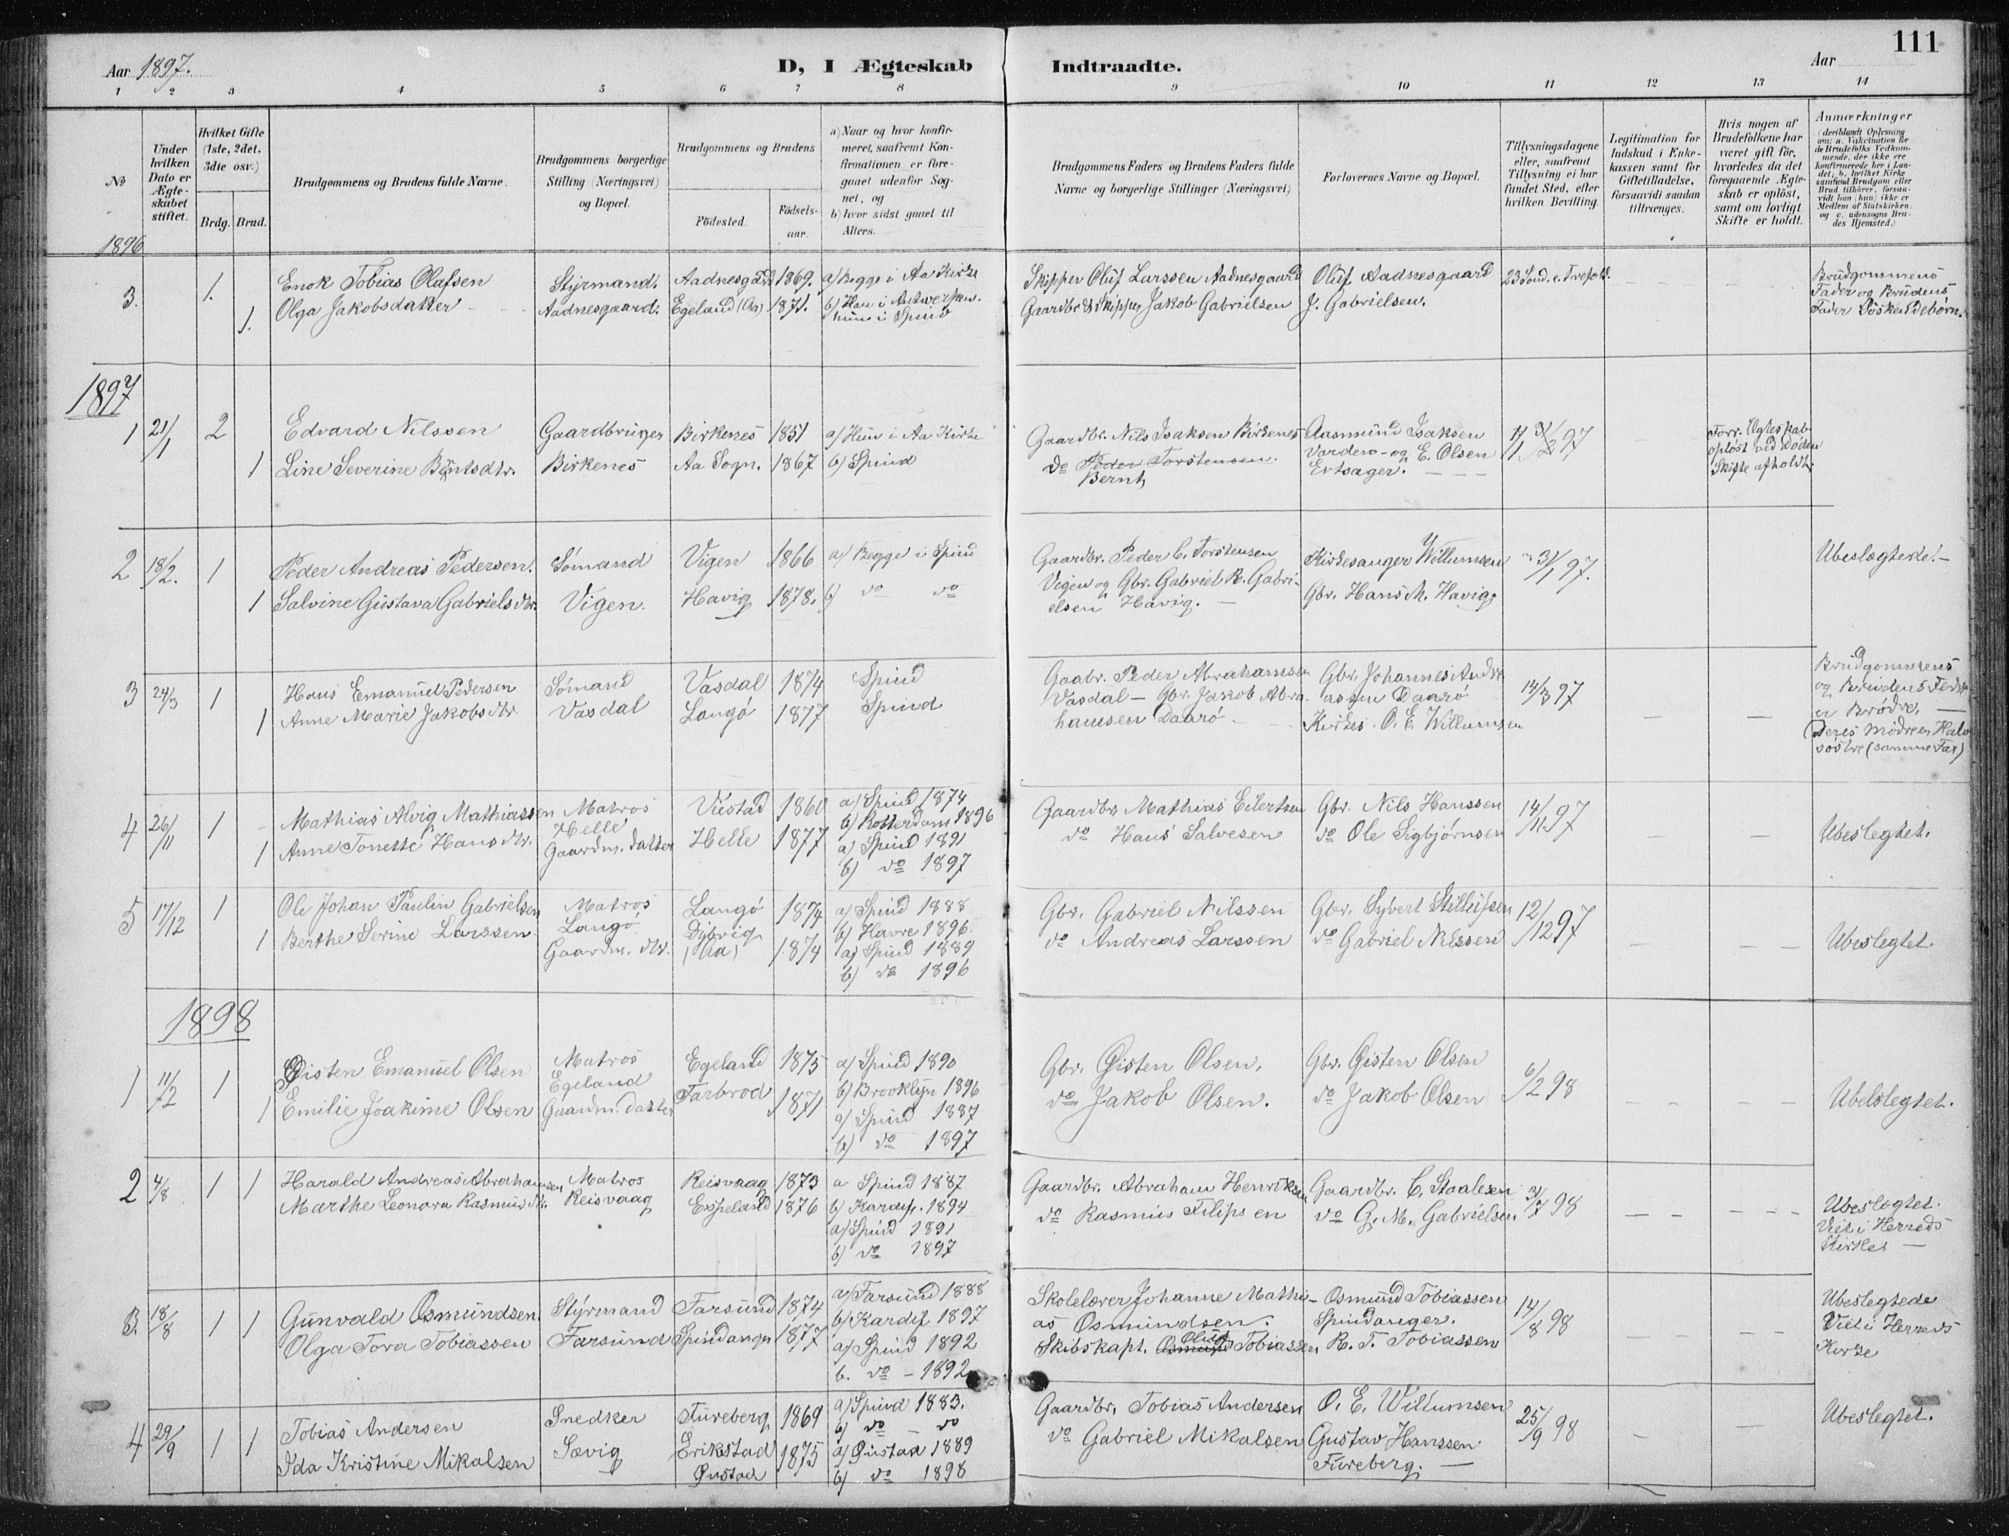 Aar 1897.
D, I Ægteskab
Indtraadte.
Aar
111
1 2 3 4 5 6 7 8 9 10 11 12 13 14
No
Under hvilken Dato er Ægteskabet stiftet.
Hvilket Gifte (1ste, 2det, 3dte osv.)
Brdg. Brud.
Brudgommens og Brudens fulde Navne.
Brudgommens borgerlige Stilling (Næringsvei) og Bopæl.
Brudgommens og Brudens
Fødested.
Fødselsaar.
a) Naar og hvor konfirmeret, saafremt Konfirmationen er foregaaet udenfor Sognet, og
b) hvor sidst gaaet til Alters.
Brudgommens Faders og Brudens Faders fulde Navne og borgerlige Stillinger (Næringsvei)
Forlovernes Navne og Bopæl.
Tillysningsdagene eller, saafremt Tillysning ei har fundet Sted, efter hvilken Bevilling.
Legitimation for Indskud i Enkekassen samt for Giftetilladelse, forsaavidt saadan tiltrænges.
Hvis nogen af Brudefolkene har været gift før, hvorledes da det foregaaende Ægteskab er opløst, samt om lovligt Skifte er holdt.
Anmærkninger
1896
3. 1. Enok Tobias Olafsen Styrmand. Aadnesgård 1869. a) Begge i Aa Kirke
1. Olga Jakobsdatter Aadnesgaard. Egeland (Aa) 1871. b) Han i Antwerpen.
hun i Spind
Skipper Oluf Larssen Aadnesgaard Oluf Aadnesgaard
Gaardbr & Skipper Jakob Gabrielsen J. Gabrielsen.
Brudgommens
Fader og Brudens
Fader Søskendebørn.
1897
1 21/1 2 Edvard Nilssen Gaardbruger Birkenes 1851 a) Hun i Aa Kirke
1 Line Severine Berntsdtr. Birkenes Aa Sogn. 1867 b) Spind
Gaardbr. Nils Isaksen Birkenes Aasmund Isaksen
do Peder Torstensen. Vardero - og E. Olsen
Bernt Ertsager.
Forr. Egteskab
opløst ved Døden
Skifte afholdt.
2 18/2. 1 Peder Andreas Pedersen. Sømand Vigen 1866 a) Begge i Spind
1 Salvine Gustava Gabrielsdtr. Vigen. Havig 1878. b) do do
Gaardbr. Peder C. Torstensen Kirkesanger Willumsen 31/1 97.
Vigen og Gbr. Gabriel R. Gabri- Gbr. Hans M. Havig.
elsen Havig.
Ubeslægtede.
3 24/3 1 Hans Emanuel Pedersen Sømand Vasdal 1874 Spind
1 Anne Marie Jakobsdtr. Vasdal Langø 1877 Spind
Gaabr. Peder Abrahamssen Gbr. Johannes Andre
Vasdal - Gbr. Jakob Abra assen Daarø 14/3 97
hamsen Daarø Kirkes. O. E. Willumsen
Brudgommens
og Brudens Fedre
er Brødre,
(Deres Mødre er Halv
søstre (samme Far)
4 26/11 1 Mathias Alvig Mathiassen Matros Viestad 1860 a) Spind 1874
Helle b) Rotterdam 1896
1 Anne Tonette Hansdtr. Gaardm. datter Helle 1877 a) Spind 1891
b) do 1897
Gaardbr. Mathias Eilertsen Gbr. Nils Hanssen 14/11 97
do Hans Salvesen do Ole Sigbjørnsen
Ubeslegtet.
5 17/12 1 Ole Johan Paulin Gabrielsen Matros Langø 1874 a) Spind 1888
Langø b) Havre 1896.
1 Berthe Serine Larssen Gaardm. dtr. Dybvig (Aa) 1874 a) Spind 1889
b) do 1896
Gbr. Gabriel Nilssen Gbr. Syvert 12/12 97
do Andreas Larssen do Gabriel Nilssen
Ubeslegtet.
1898
1 11/2 1 Øisten Emanuel Olsen Matros Egeland 1875 a) Spind 1890
Egeland b) Brooklyn 1896
1 Emilie Joakime Olsen Gaardm. datter Farbrod 1871 a) Spind 1887
b) do 1897
Gbr. Øisten Olsen, Gbr. Øisten Olsen 6/2 98
do Jakob Olsen. do Jakob Olsen
Ubelslegtet.
2 4/8 1 1 Harald Andreas Abrahamsen Matros Reisvaag 1873 a Spind 1887
Marthe Leonora Rasmusdtr. Reisvaag Espeland 1876 b) Kardif. 1894
a) Spind 1891
b) do 1897
Gaardbr. Abraham Henriksen Gaardbr. C. Staalesen 31/7 98
do Rasmus Filipsen do G. M. Gabrielsen.
Ubeslegtet.
Viet i Herreds
Kirke
3. 18/8 1 1 Gunvald Osmundsen Styrmand Farsund 1874 a) Farsund 1888
b) Kardif 1897
Olga Tora Tobiassen Farsund Spindanger 1877 a) Spind 1892
b. do - 1892
Skolelærer Johanne Mathi- Osmund Tobiassen 14/8 98
as Osmundsen. Spindanger.
Skibskapt. Oluf Tobiassen R. T. Tobiassen
Ubeslegtede
Viet i Herreds
Kirke
4 29/9 1 1 Tobias Andersen Snedker Fureberg 1869 a) Spind 1883.
b) do do
Ida Kristine Mikalsen Sævig Erikstad 1875 a) Øustad 1889
Øustad b) do 1898
Gaardbr. Tobias Andersen O. E. Willumsen 25/9 98
do Gabriel Mikalsen Gustav Hanssen
Fureberg.
Ubeslegtet.